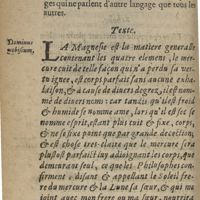 ges qui ne parlent d'autre langage que tous les
autres.
Texte.
Dominus
vobiscum,
LA Magnesie est la matiere generalle
contenant les quatre elemens, le mer-
cure cuit de telle façon qu'il n'a perdu sa ver-
tu ignee, est corps parfait sans aucune exhal-
laison, & à cause de divers degrez, il est nom-
mé de divers noms: car tandis qu'il est froid
& humide se nomme ame, lors qu'il est sec se
nomme esprit, estant plus cuit & fixe, corps,
& ne se fixe point que par grande decoction,
& est chose tres-claire que le mercure sera
plustost parfait luy adjoignant les corps, que
demeurant seul, ce que les Philosophes con-
ferment disant & appellant le Soleil fre-
re du mercure & la Lune sa sœur, & qui